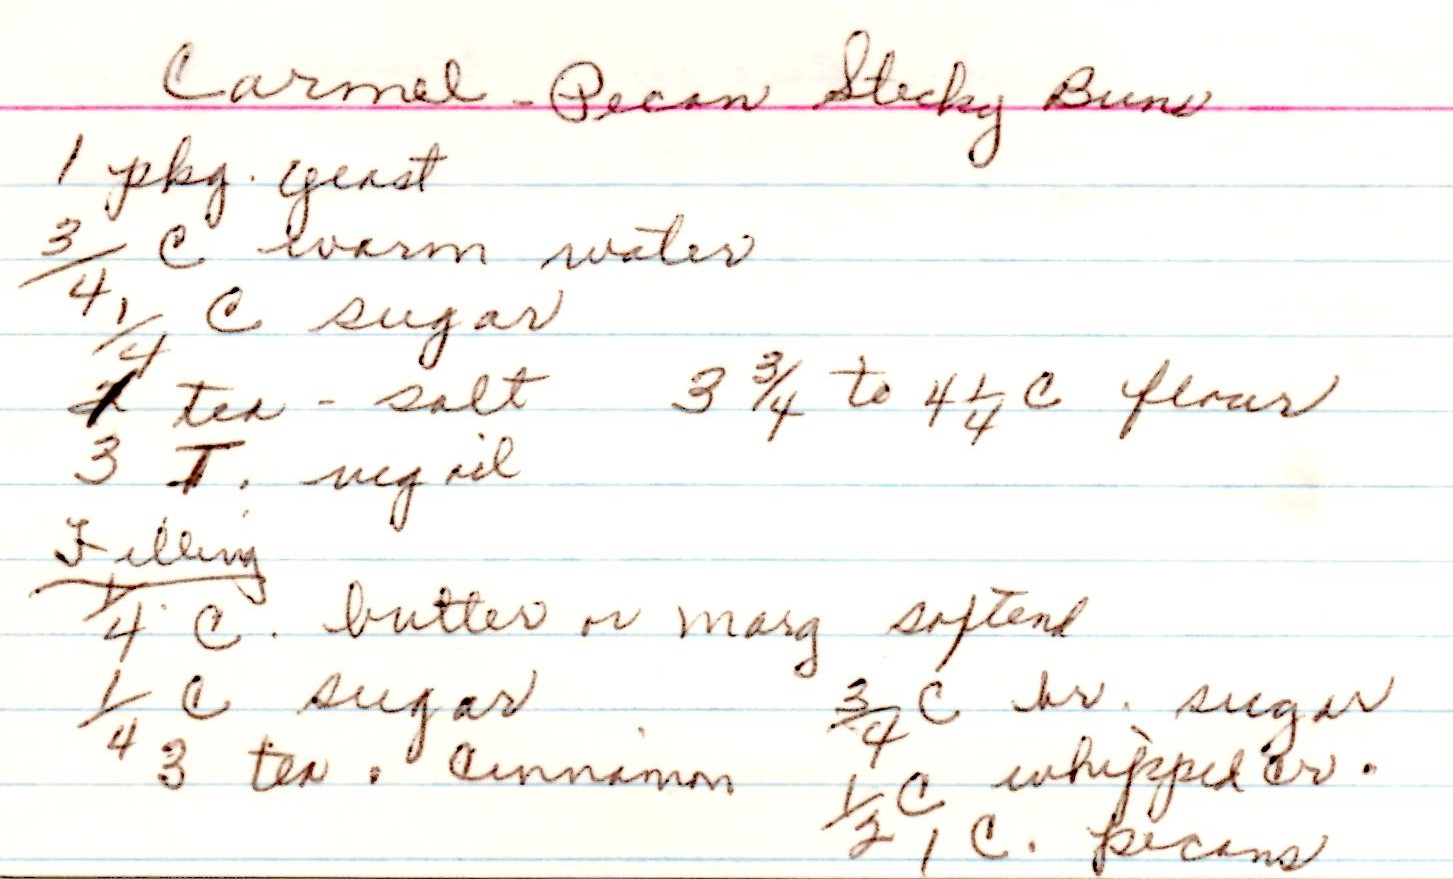 Carmel - Pecan Stecky Buns
1 pkg. yeast
3/4 C warm water
1/4 C sugar
1 tea - salt 3 3/4 to 4 1/4 C flour
3 T. veg oil
Filling
1/4 C. butter or marg softend
1/4 C sugar 3/4 C br. sugar
3 tea. Cinnamon 1/2 C whipped cr.
1 C. pecans